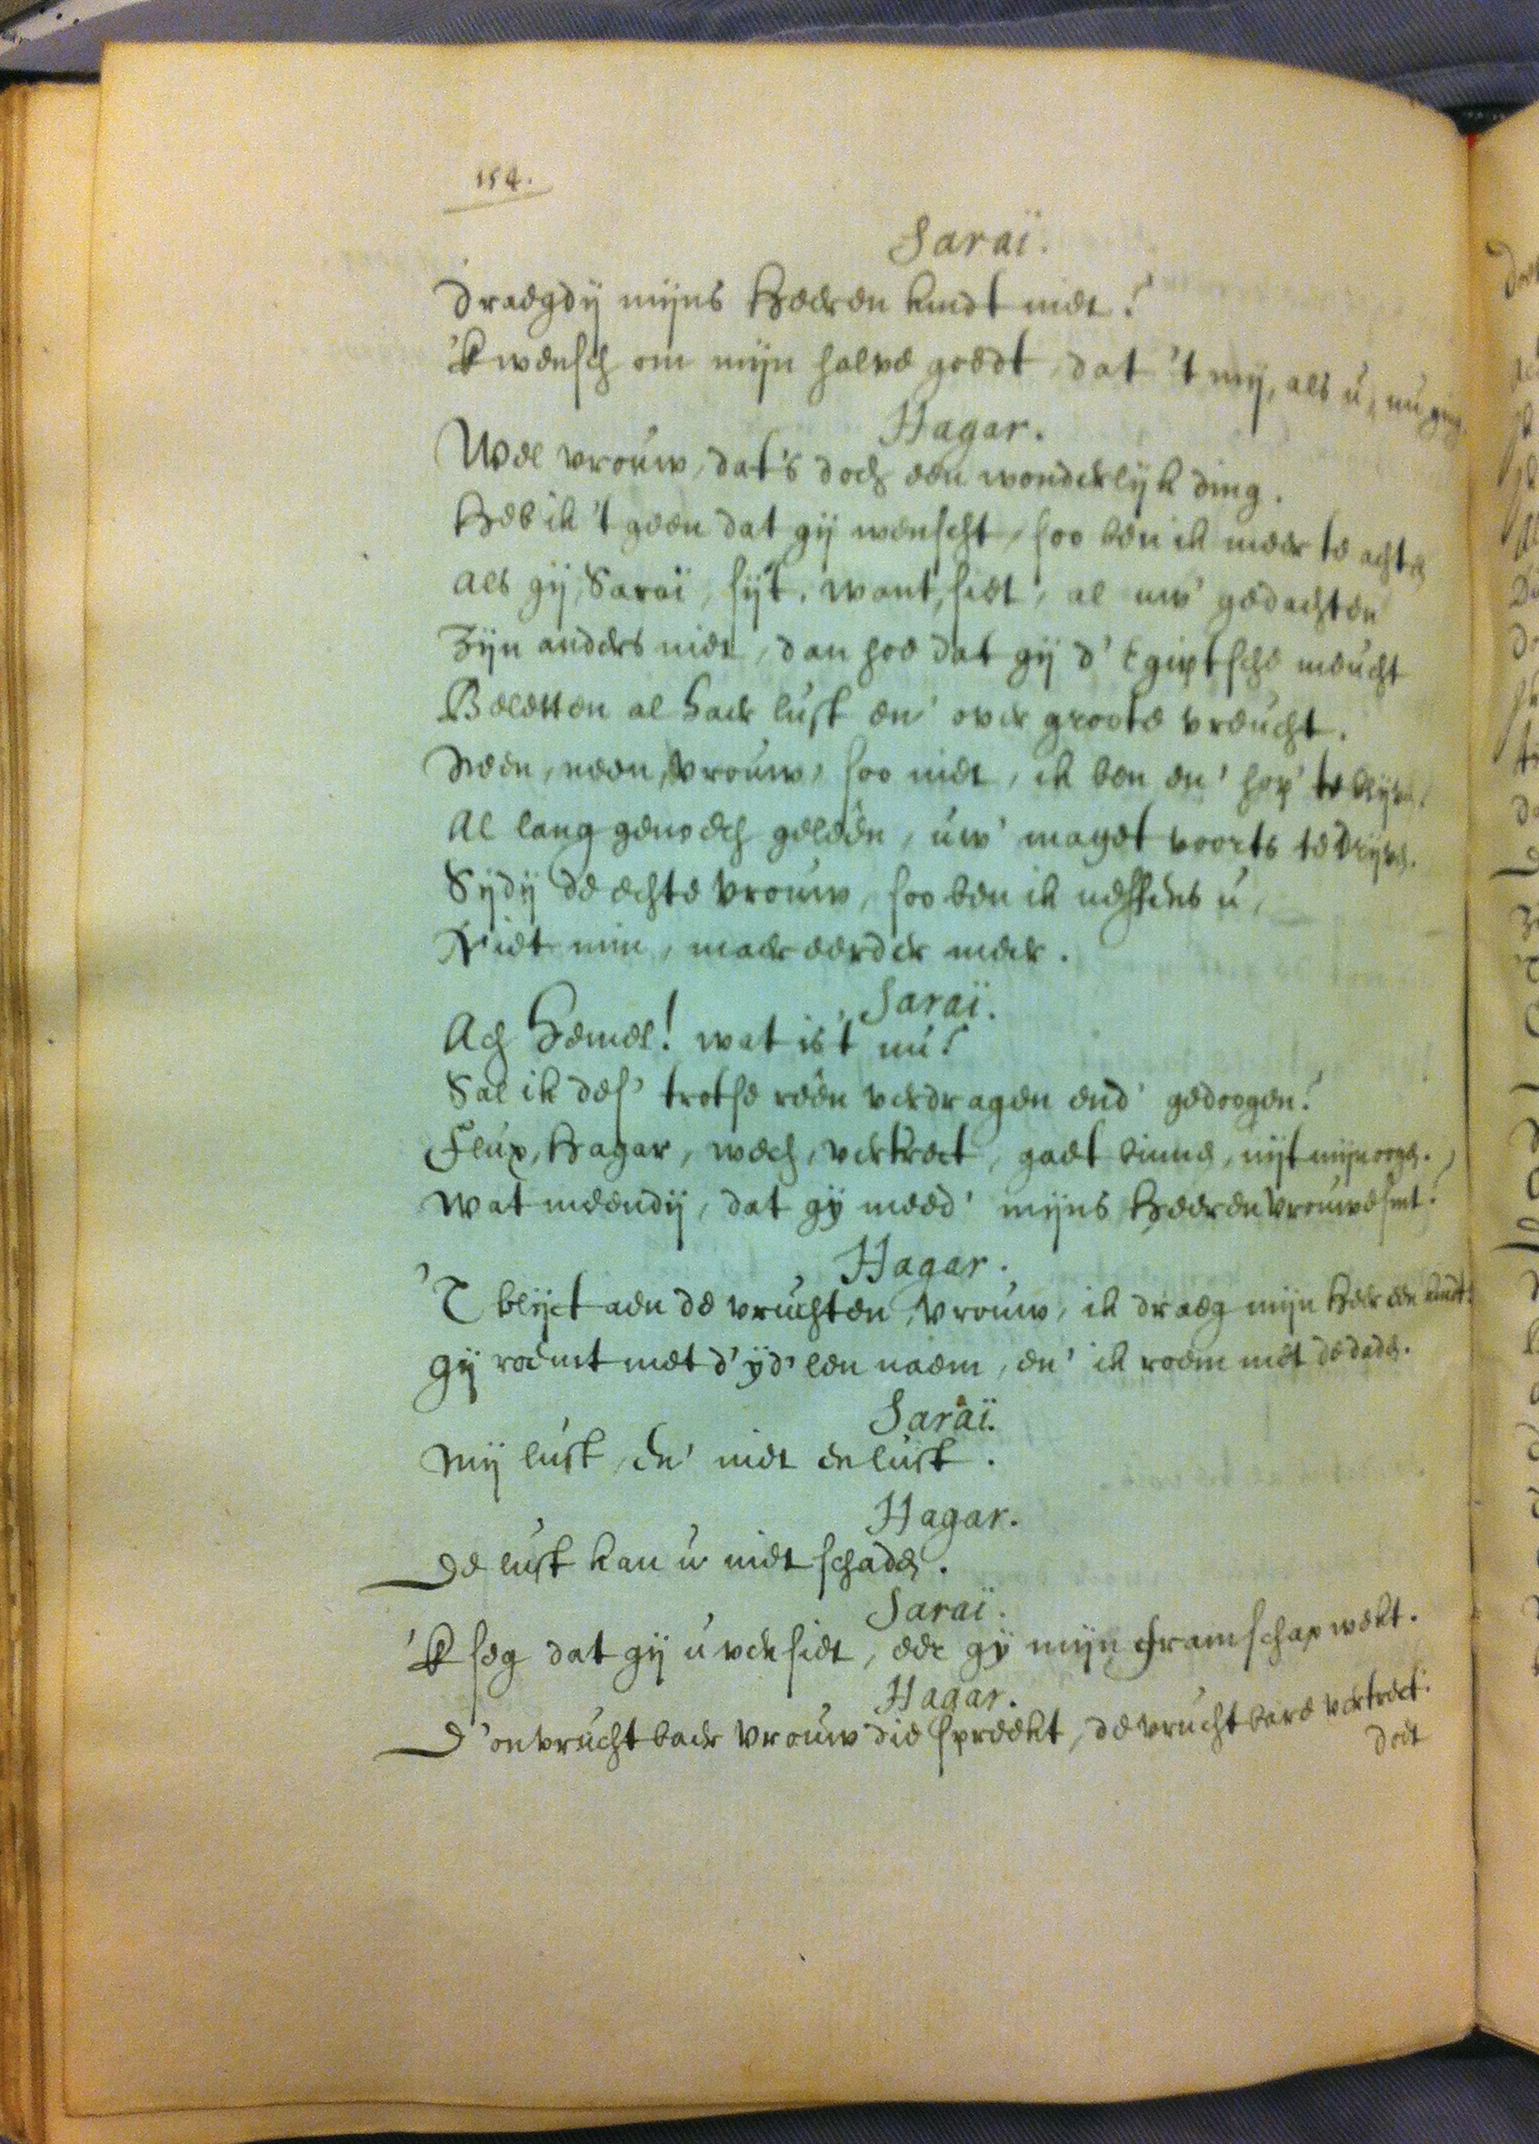 154.
Saraï.
Draegdij mijns Heeren kindt niet?
'K wensch om mijn halve goedt, dat 't mij, als u, nu ging.
Hagar.
Wel vrouw, dat's doch een wonderlijk ding.
Heb ik 't geen dat gij wenscht, soo ben ik meer te achten
Als gij, Saraï, sijt. want, siet, al uw' gedachten
Zijn anders niet, dan hoe dat gij d' Egiptsche meucht
Beletten al haer lust en' over groote vreucht.
Neen, neen, vrouw, soo niet, ik ben en' hop' te blijven,
Al lang genoech geleên, uw' maget voorts te drijven.
Sijdij de echte vrouw, soo ben ik neffens u,
Niet min, maer eerder meer.
Saraï.
Ach Hemel! wat is't nu?
Sal ik des' trotse reên verdragen end' gedoogen?
Flux, Hagar, wech, vertrect, gaet binnen, uijt mijn oogen.
Wat meendij, dat gij meed' mijns Heeren vrouwe sint?
Hagar.
'T blijct aen de vruchten, vrouw, ik draeg mijn Heer een kindt.
Gij roemt met d' ijd'len naem, en' ik roem met de daden.
Saraï.
Mij lust, en' niet de lust.
Hagar.
De lust kan u niet schaden.
Saraï.
'K seg dat gij u versiet, eer gij mijn gramschap wekt.
Hagar.
D' onvruchtbaer vrouw die spreekt, de vruchtbare vertrect.
doet